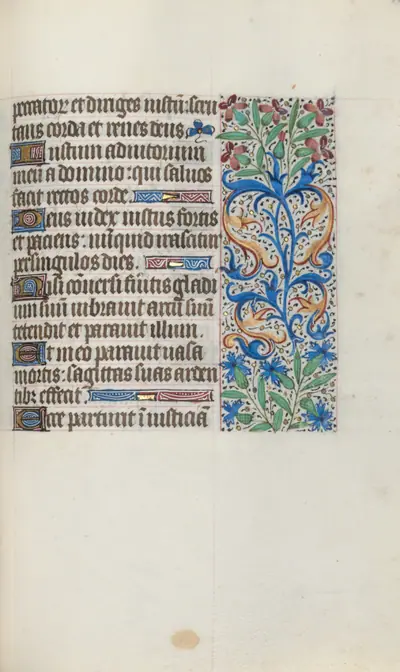 peccator et diriges iustu: scru
tans corda et renes deus.
Iustum adiutorium
meu a domino: qui saluos
facit rectos corde.
Deus iudex iustus fortis
et paciens: nuquid irascatur
per singulos dies.
Nisi couersi fueritis gladi
um suu uibrauit arcu suu
tetendit et parauit illum
Et in eo parauit uasa
mortis: sagittas suas arden
tibz effecit
Ecce parturit i iusticia